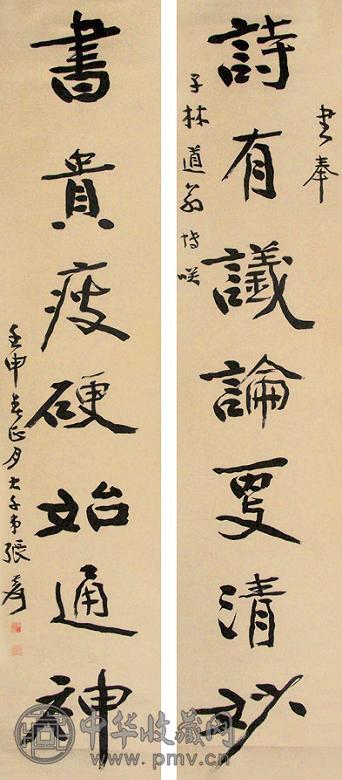 書奉
詩有議論更清妙
子林道翁博咲
書貴瘦硬始通神
壬申春正月大千弟張爰
中华收藏网
www.pmv.cn